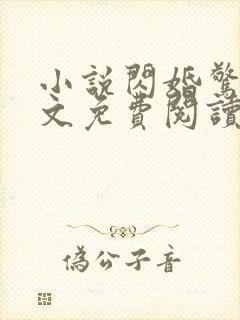 小說閃婚驚
文免費閱讀
偽公子音